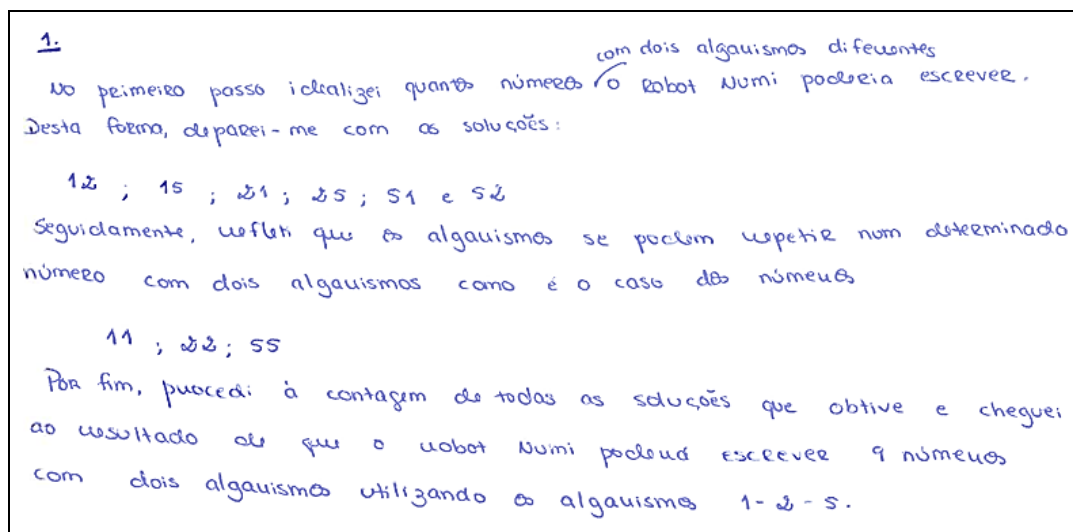 1.
com dois algarismos diferentes
No primeiro passo idealizei quantos números o Robot Numi poderia escrever.
Desta forma, deparei-me com as soluções:
12 ; 15 ; 21 ; 25 ; 51 e 52
Seguidamente, refleti que os algarismos se podem repetir num determinado
número com dois algarismos como é o caso dos números
11 ; 22 ; 55
Por fim, procedi à contagem de todas as soluções que obtive e cheguei
ao resultado de que o robot Numi poderá escrever 9 números
com dois algarismos utilizando os algarismos 1-2-5.